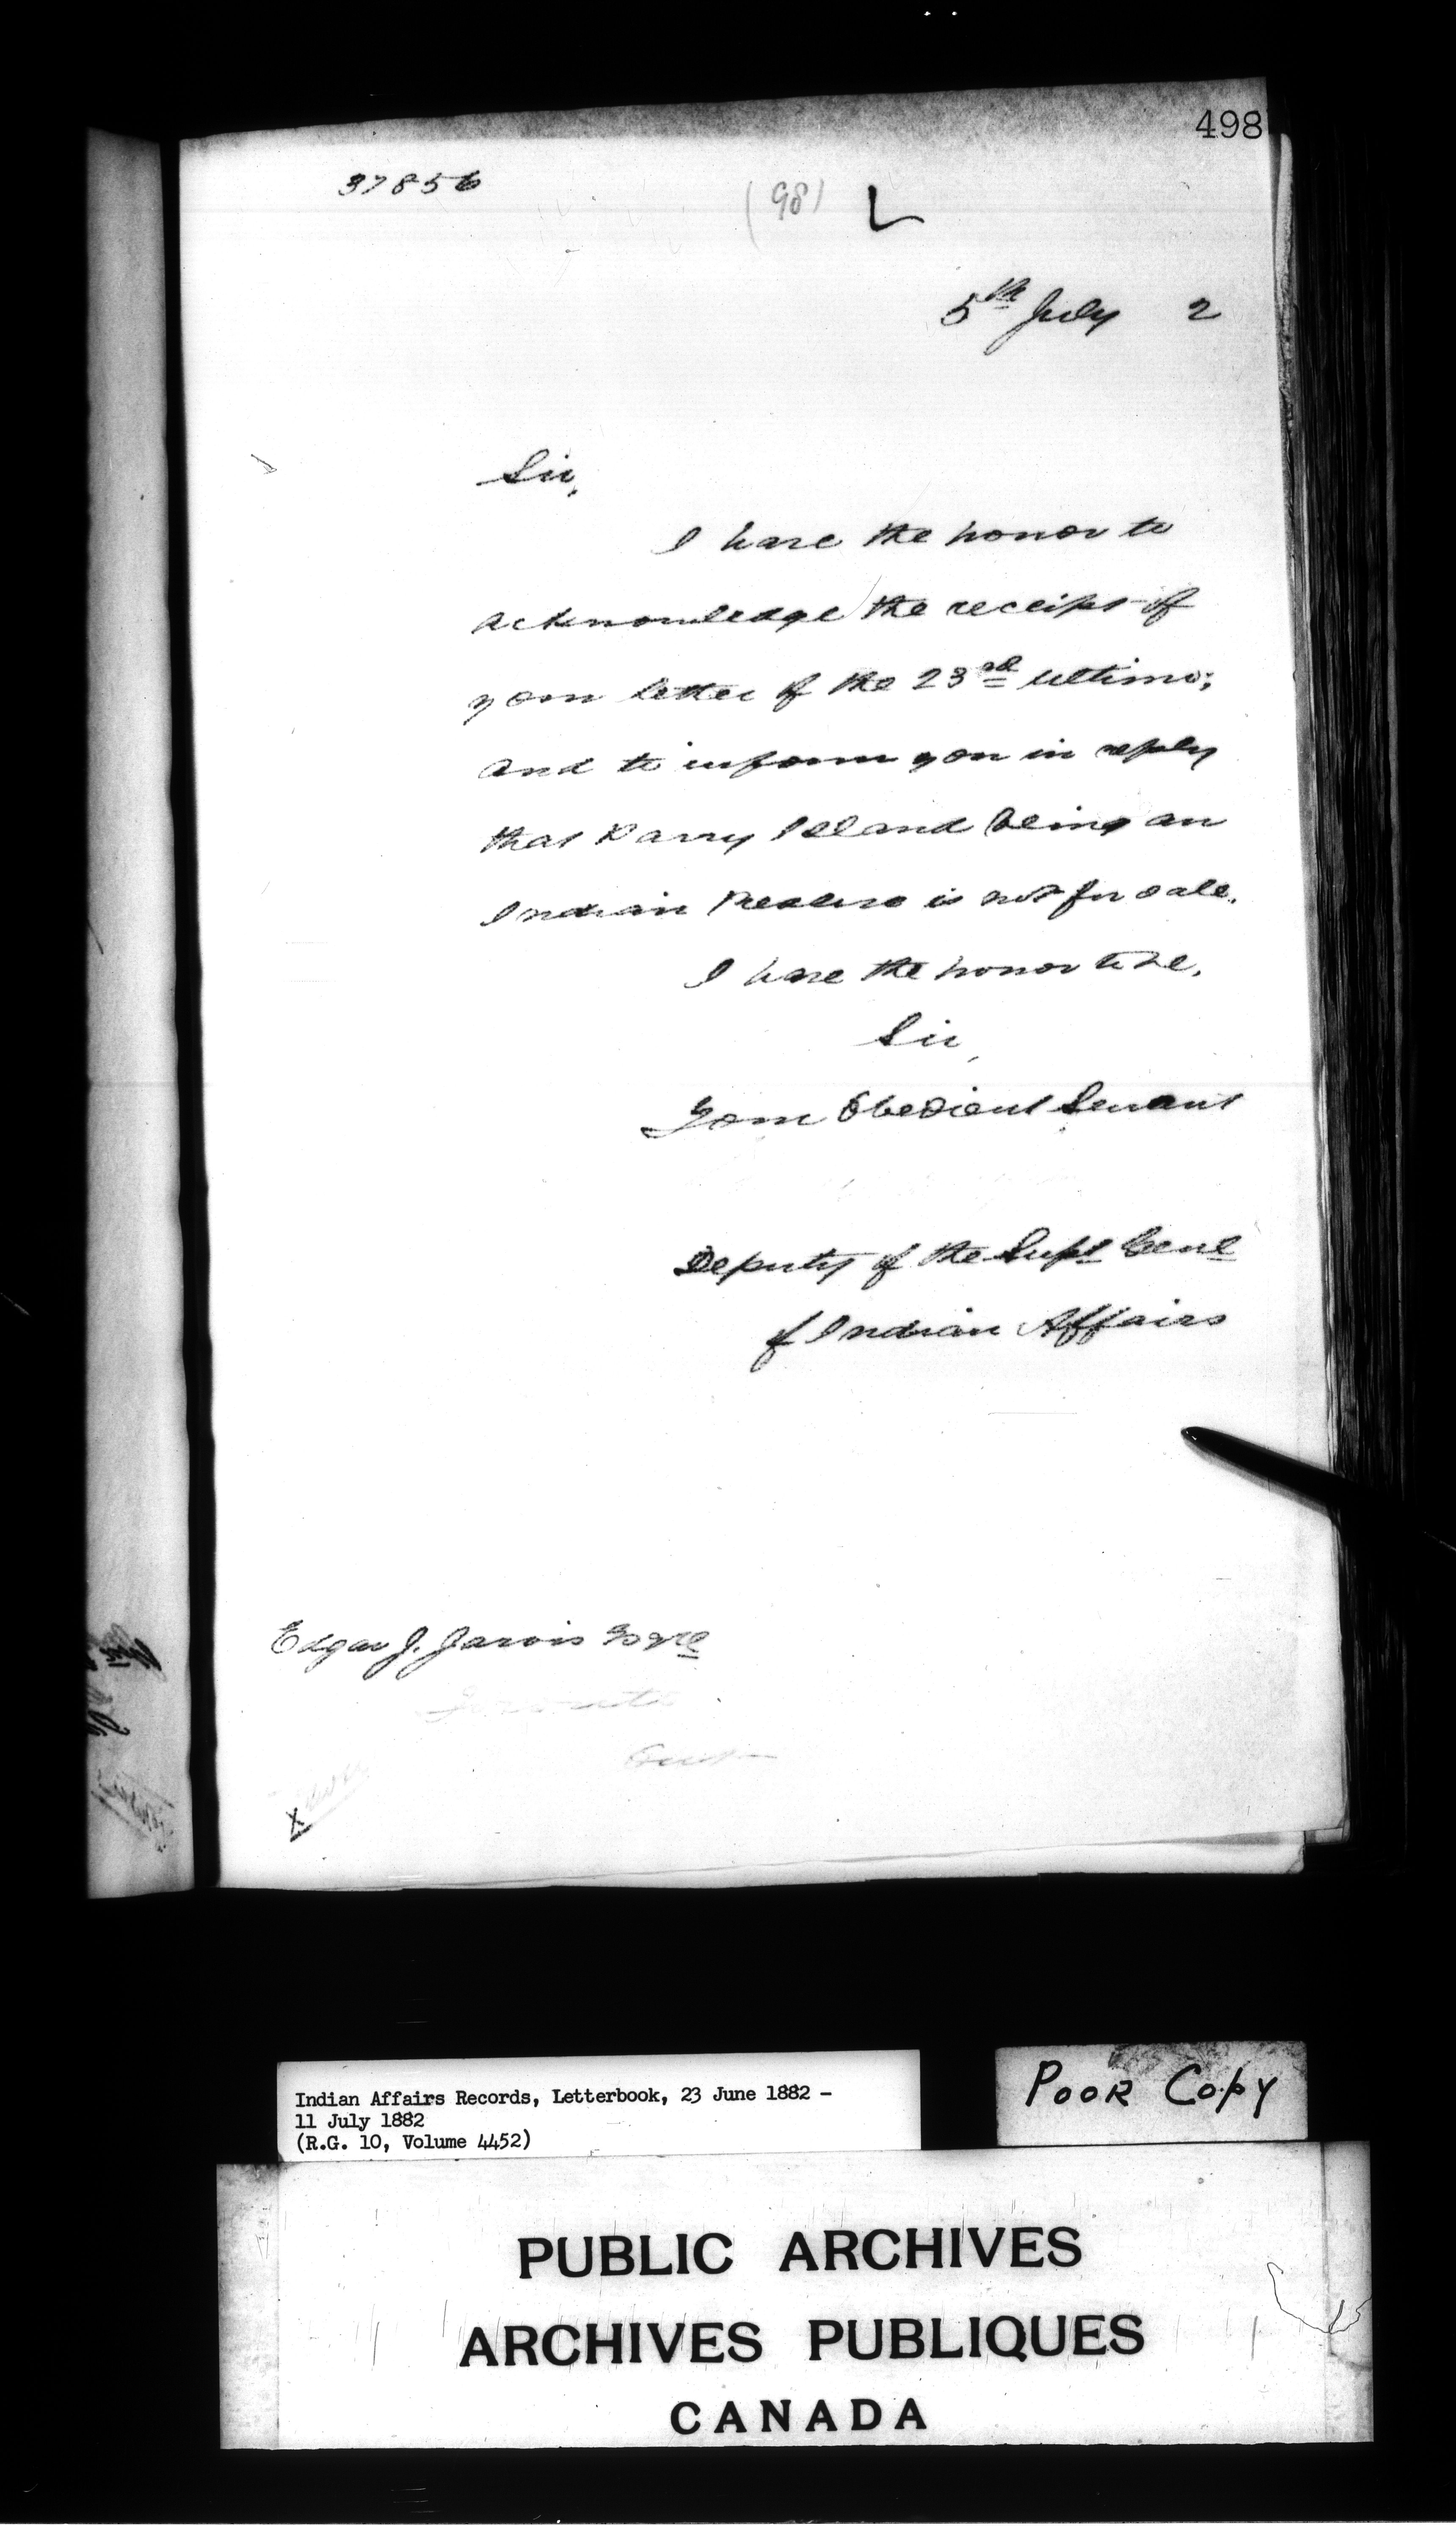 498
37856
(98)
5th July 2
Sir,
I have the honor to
acknowledge the receipt of
your letter of the 23rd ultimo;
and to inform you in reply
that Parry Island being an
Indian Reserve is not for sale.
I have the honor to be,
Sir,
Your Obedient Servant
Deputy of the Supt Genl
of Indian Affairs
Edgar J. Jarvis Esqre
Toronto
Ont
Indian Affairs Records, Letterbook, 23 June 1882 -
11 July 1882
(R.G. 10, Volume 4452)
POOR COPY
PUBLIC ARCHIVES
ARCHIVES PUBLIQUES
CANADA